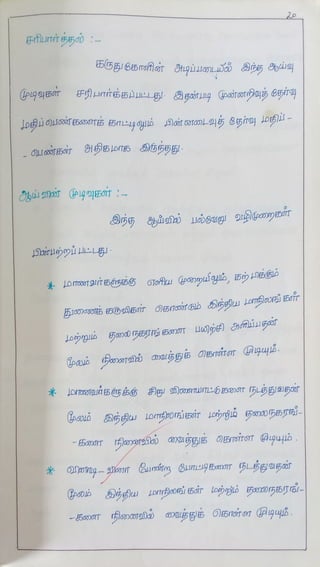 20
சரிபார்த்தல் :-
கருதுகோளின் அடிப்படையில் இந்த ஆய்வு
முடிவுகள் சரிபார்க்கப்பட்டது இதன்படி முன்னறிவுத் தேர்வு
மதிப்பெண்களைக் காட்டிலும் பின்னடைவுத் தேர்வு மதிப்-
-பெண்கள் அதிகமாக இருந்தது.
ஆய்வின் முடிவுகள் :-
இந்த ஆய்வில் பல்வேறு வழிமுறைகள்
பின்பற்றப்பட்டது.
* மாணவர்களுக்கு எளிய முறையிலும், கற்பிக்கும்
துணைக் கருவிகள் கொண்டும் இந்திய மாநிலங்கள்
மற்றும் தலைநகரங்களை பயிற்சி அளிப்பதன்
மூலம் நினைவில் வைத்துக் கொள்ள முடியும்.
* மாணவர்களுக்கு சிறு விளையாட்டுகளை நடத்துவதன்
மூலம் இந்திய மாநிலங்கள் மற்றும் தலைநகரங்-
-களை நினைவில் வைத்துக் கொள்ள முடியும்.
* வினாடி-வினா போன்ற போட்டிகளை நடத்துவதன்
மூலம் இந்திய மாநிலங்கள் மற்றும் தலைநகரங்-
-களை நினைவில் வைத்துக் கொள்ள முடியும்.